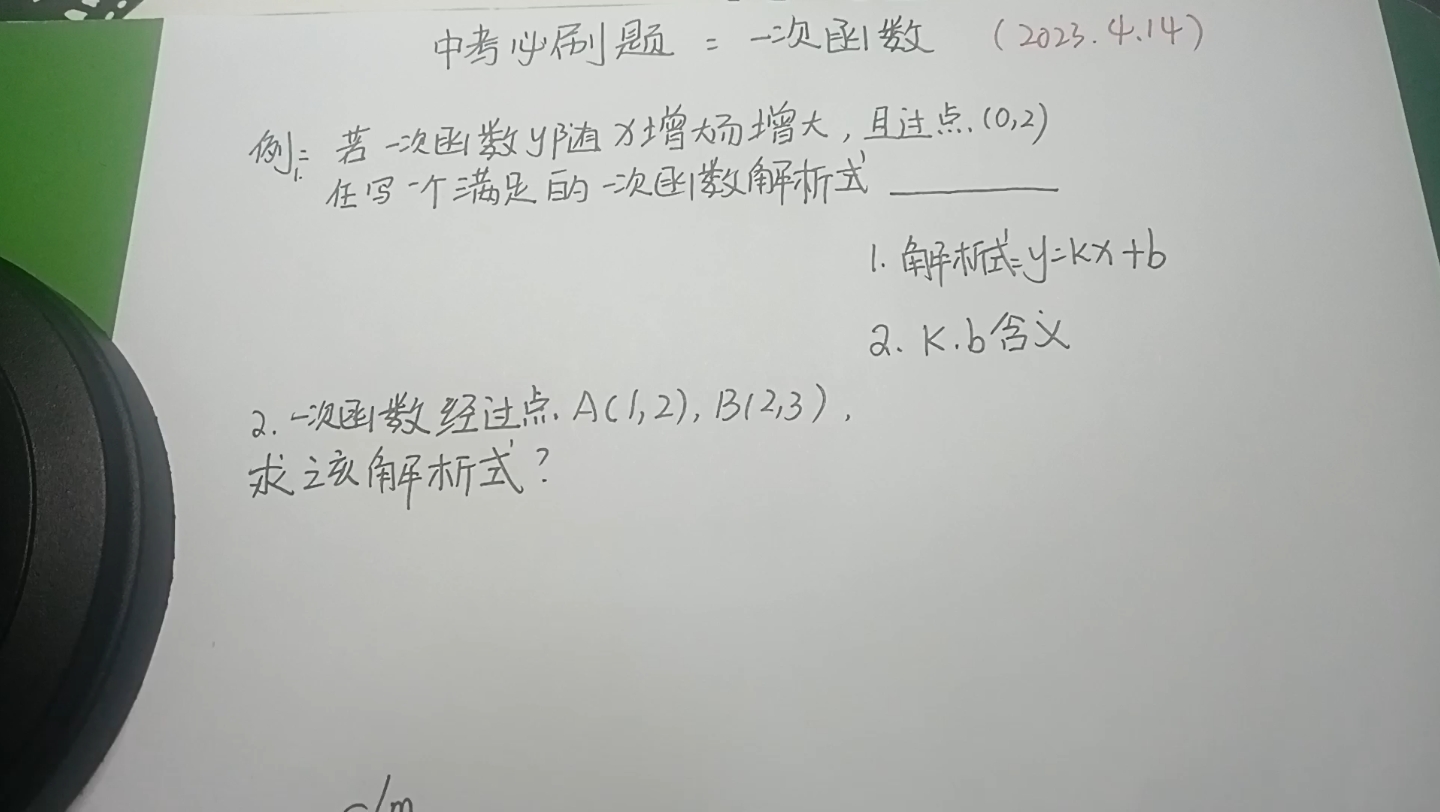 中考必刷题:一次函数 (2023.4.14)
例1: 若一次函数y随x增大而增大,且过点(0,2)
任写一个满足的一次函数解析式 ________
1. 解析式:y=kx+b
2. K.b含义
2. 一次函数经过点A(1,2),B(2,3),
求该解析式?